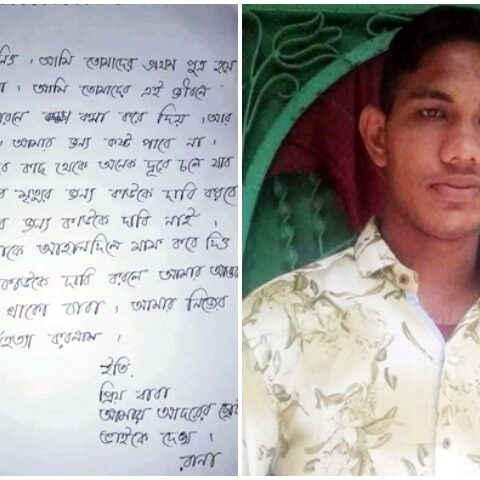 আমি তোমাদের প্রথম পুত্র হয়ে
। আমি তোমাদের এই জীবনে
ক্ষমা করে দিয়। আর
আমার জন্য কষ্ট পাবে না।
কাছ থেকে অনেক দূরে চলে যাব
মৃত্যুর জন্য কাউকে দাবি করবে
জন্য কাউকে দাবি নাই।
মাফ করে দিও
দাবি করলে আমার
থাকো বাবা। আমার নিজের
করলাম।
ইতি,
প্রিয় বাবা
আমার আদরের ছোট
ভাইকে দেখ।
রানা